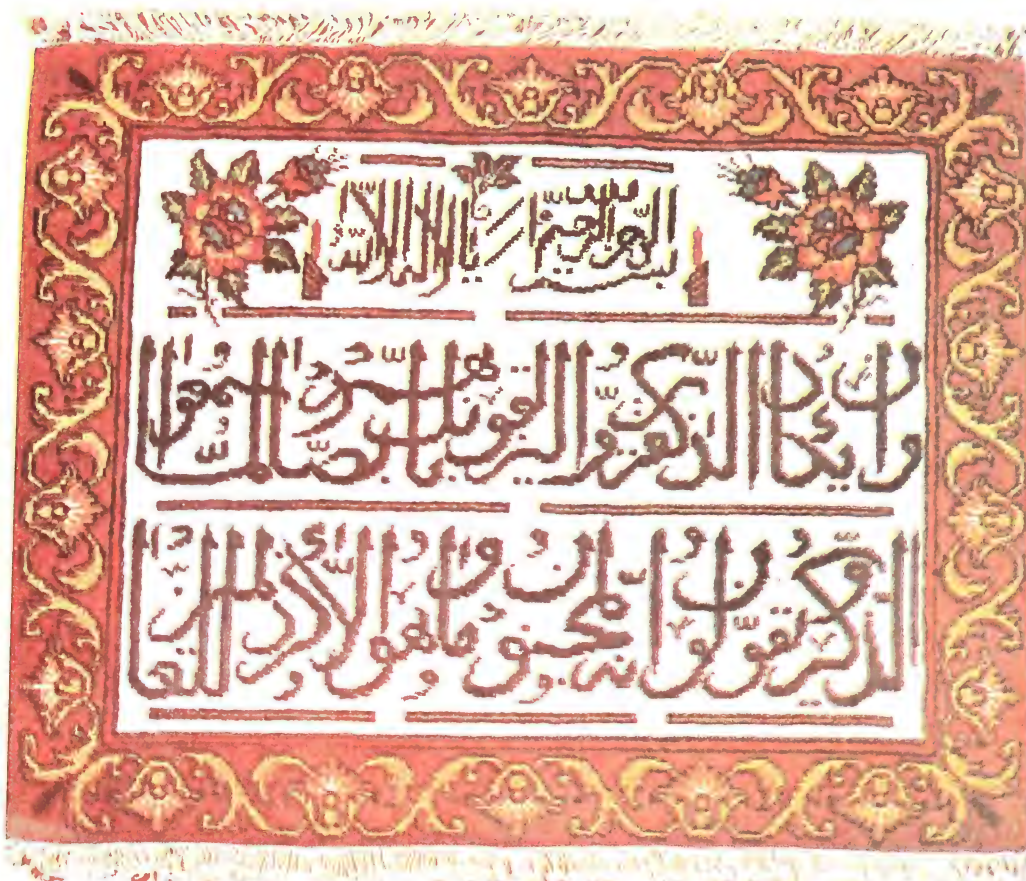 بسم الله الرحمن الرحیم
وان یکاد الذین کفروا لیزلقونک بابصارهم لما سمعوا
الذکر و یقولون انه لمجنون و ما هو الا ذکر للعالمین